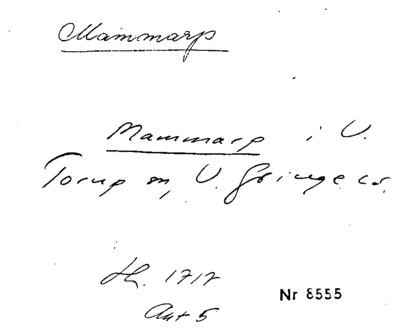 Mammarp
Mammarp i V.
Torup sn, V. Göinge hd.
Jb. 1717
Ant 5
Nr 8555